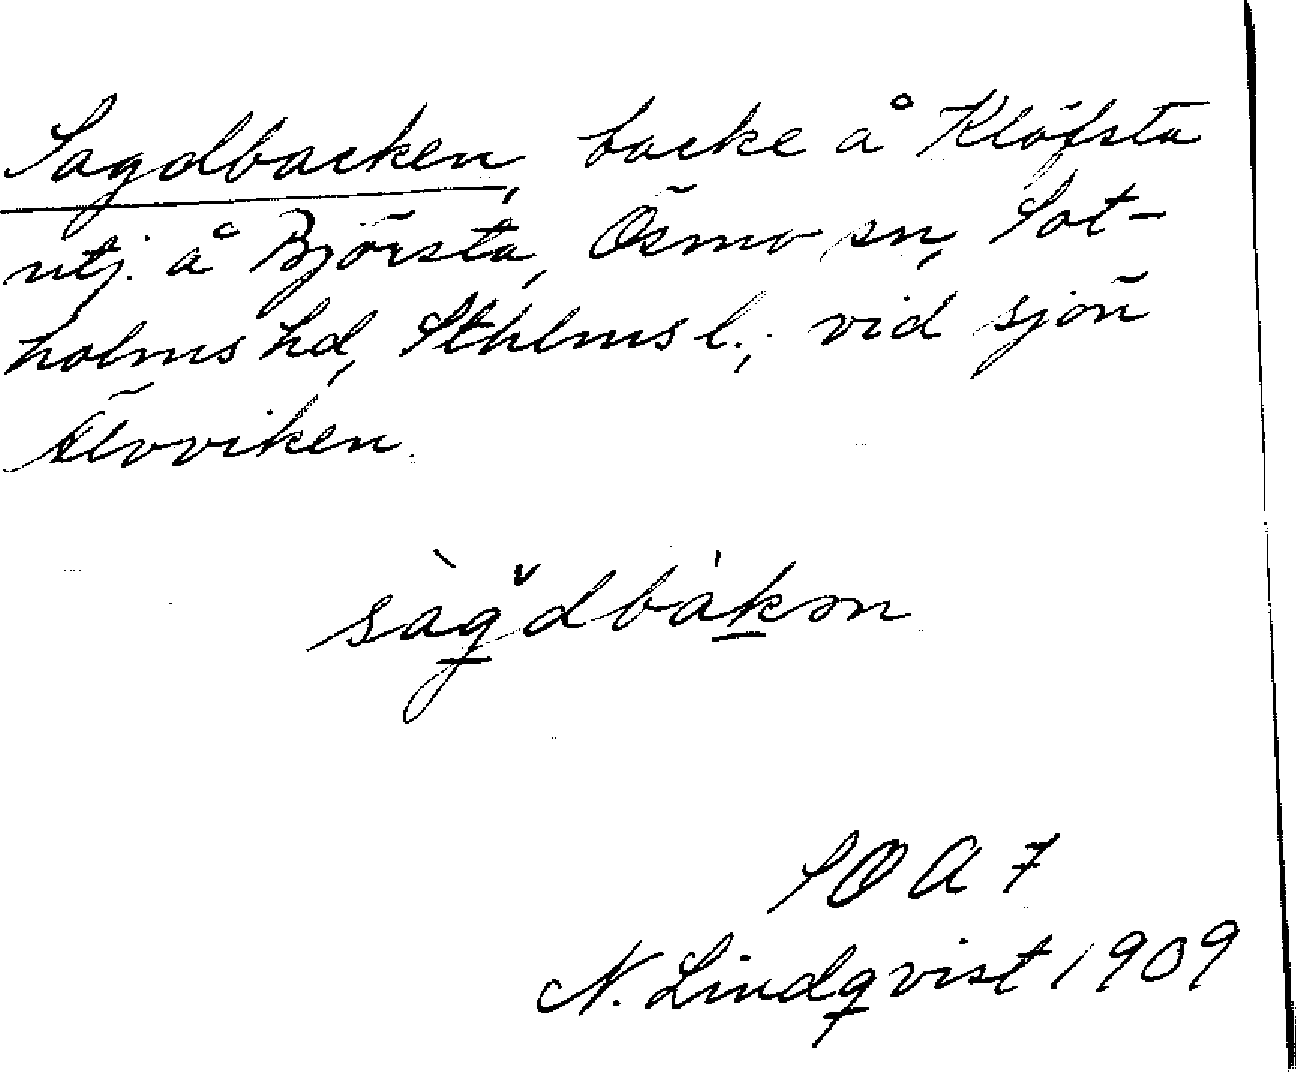 Sagdbacken, backe å Klöfsta
utj. å Björsta, Ösmo sn, Sot-
holms hd, Sthlms l.; vid sjön
Älvviken.
sàgdbàkən
SOA 7
N. Lindqvist 1909